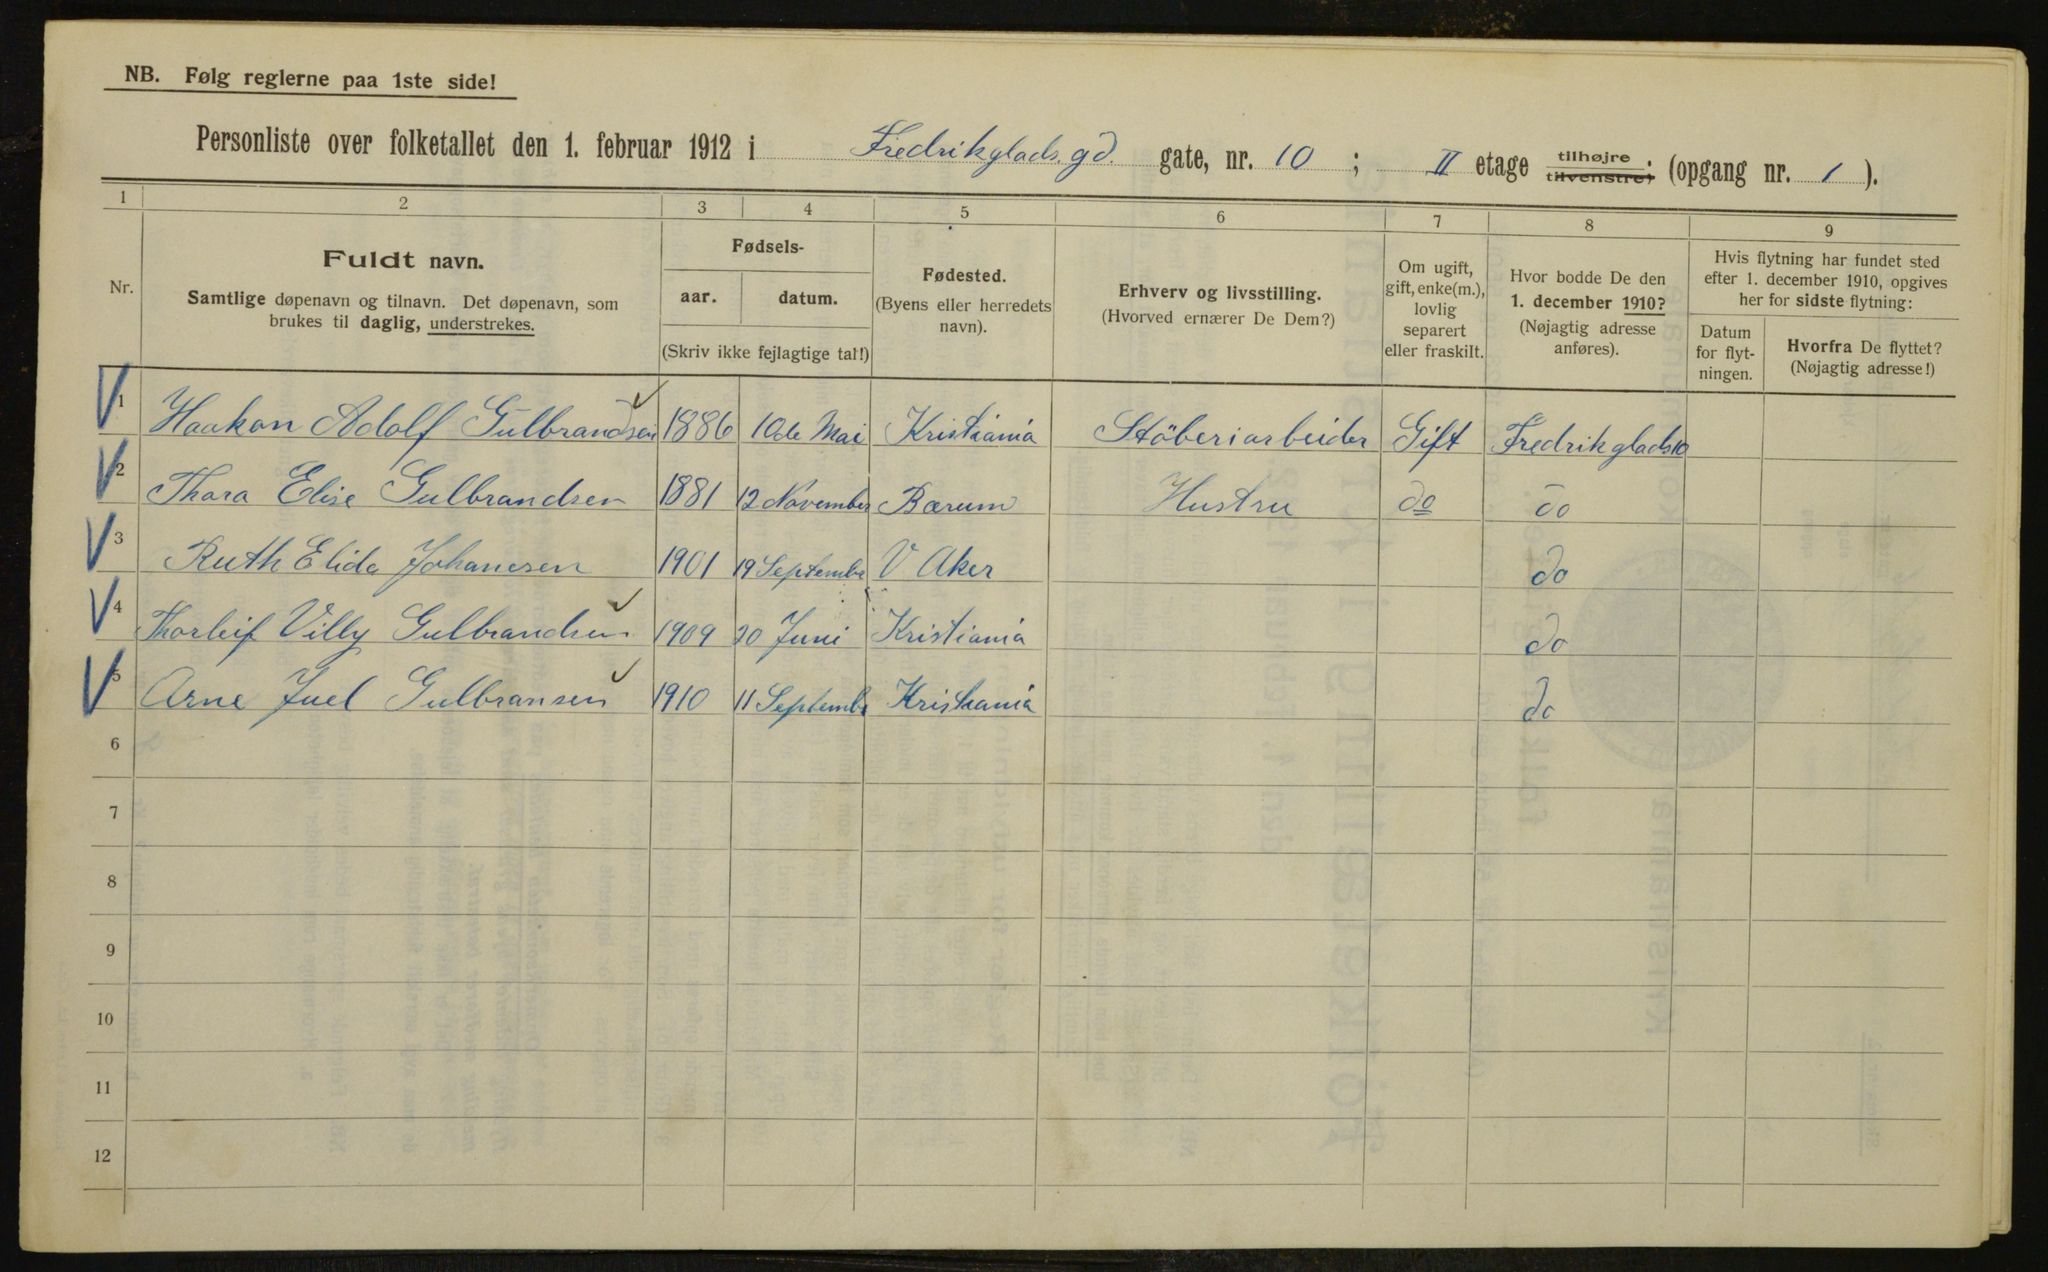 NB. Følg reglerne paa 1ste side!
Personliste over folketallet den 1. februar 1912 i Fredrikglads. gd. gate, nr. 10 ; II etage tilhøjre tilvenstre) (opgang nr. 1 ).
1 2 3 4 5 6 7 8 9
Nr.
Fuldt navn.
Samtlige døpenavn og tilnavn. Det døpenavn, som
brukes til daglig, understrekes.
Fødsels-
aar. datum.
(Skriv ikke fejlagtige tal!)
Fødested.
(Byens eller herredets
navn).
Erhverv og livsstilling.
(Hvorved ernærer De Dem?)
Om ugift,
gift, enke(m.),
lovlig
separert
eller fraskilt.
Hvor bodde De den
1. december 1910?
(Nøjagtig adresse
anføres).
Hvis flytning har fundet sted
efter 1. december 1910, opgives
her for sidste flytning:
Datum
for flyt-
ningen.
Hvorfra De flyttet?
(Nøjagtig adresse!)
1 Haakon Adolf Gulbrandsen 1886 10de Mai Kristiania Stöberiarbeider Gift Fredrikglads 10
2 Thora Elise Gulbrandsen 1881 12 November Bærum Hustru do do
3 Ruth Elida Johanesen 1901 19 Septembr V Aker do
4 Thorleif Villy Gulbrandsen 1909 20 Juni Kristiania do
5 Arne Juel Gulbransen 1910 11 Septembr Kristiania do
6
7
8
9
10
11
12